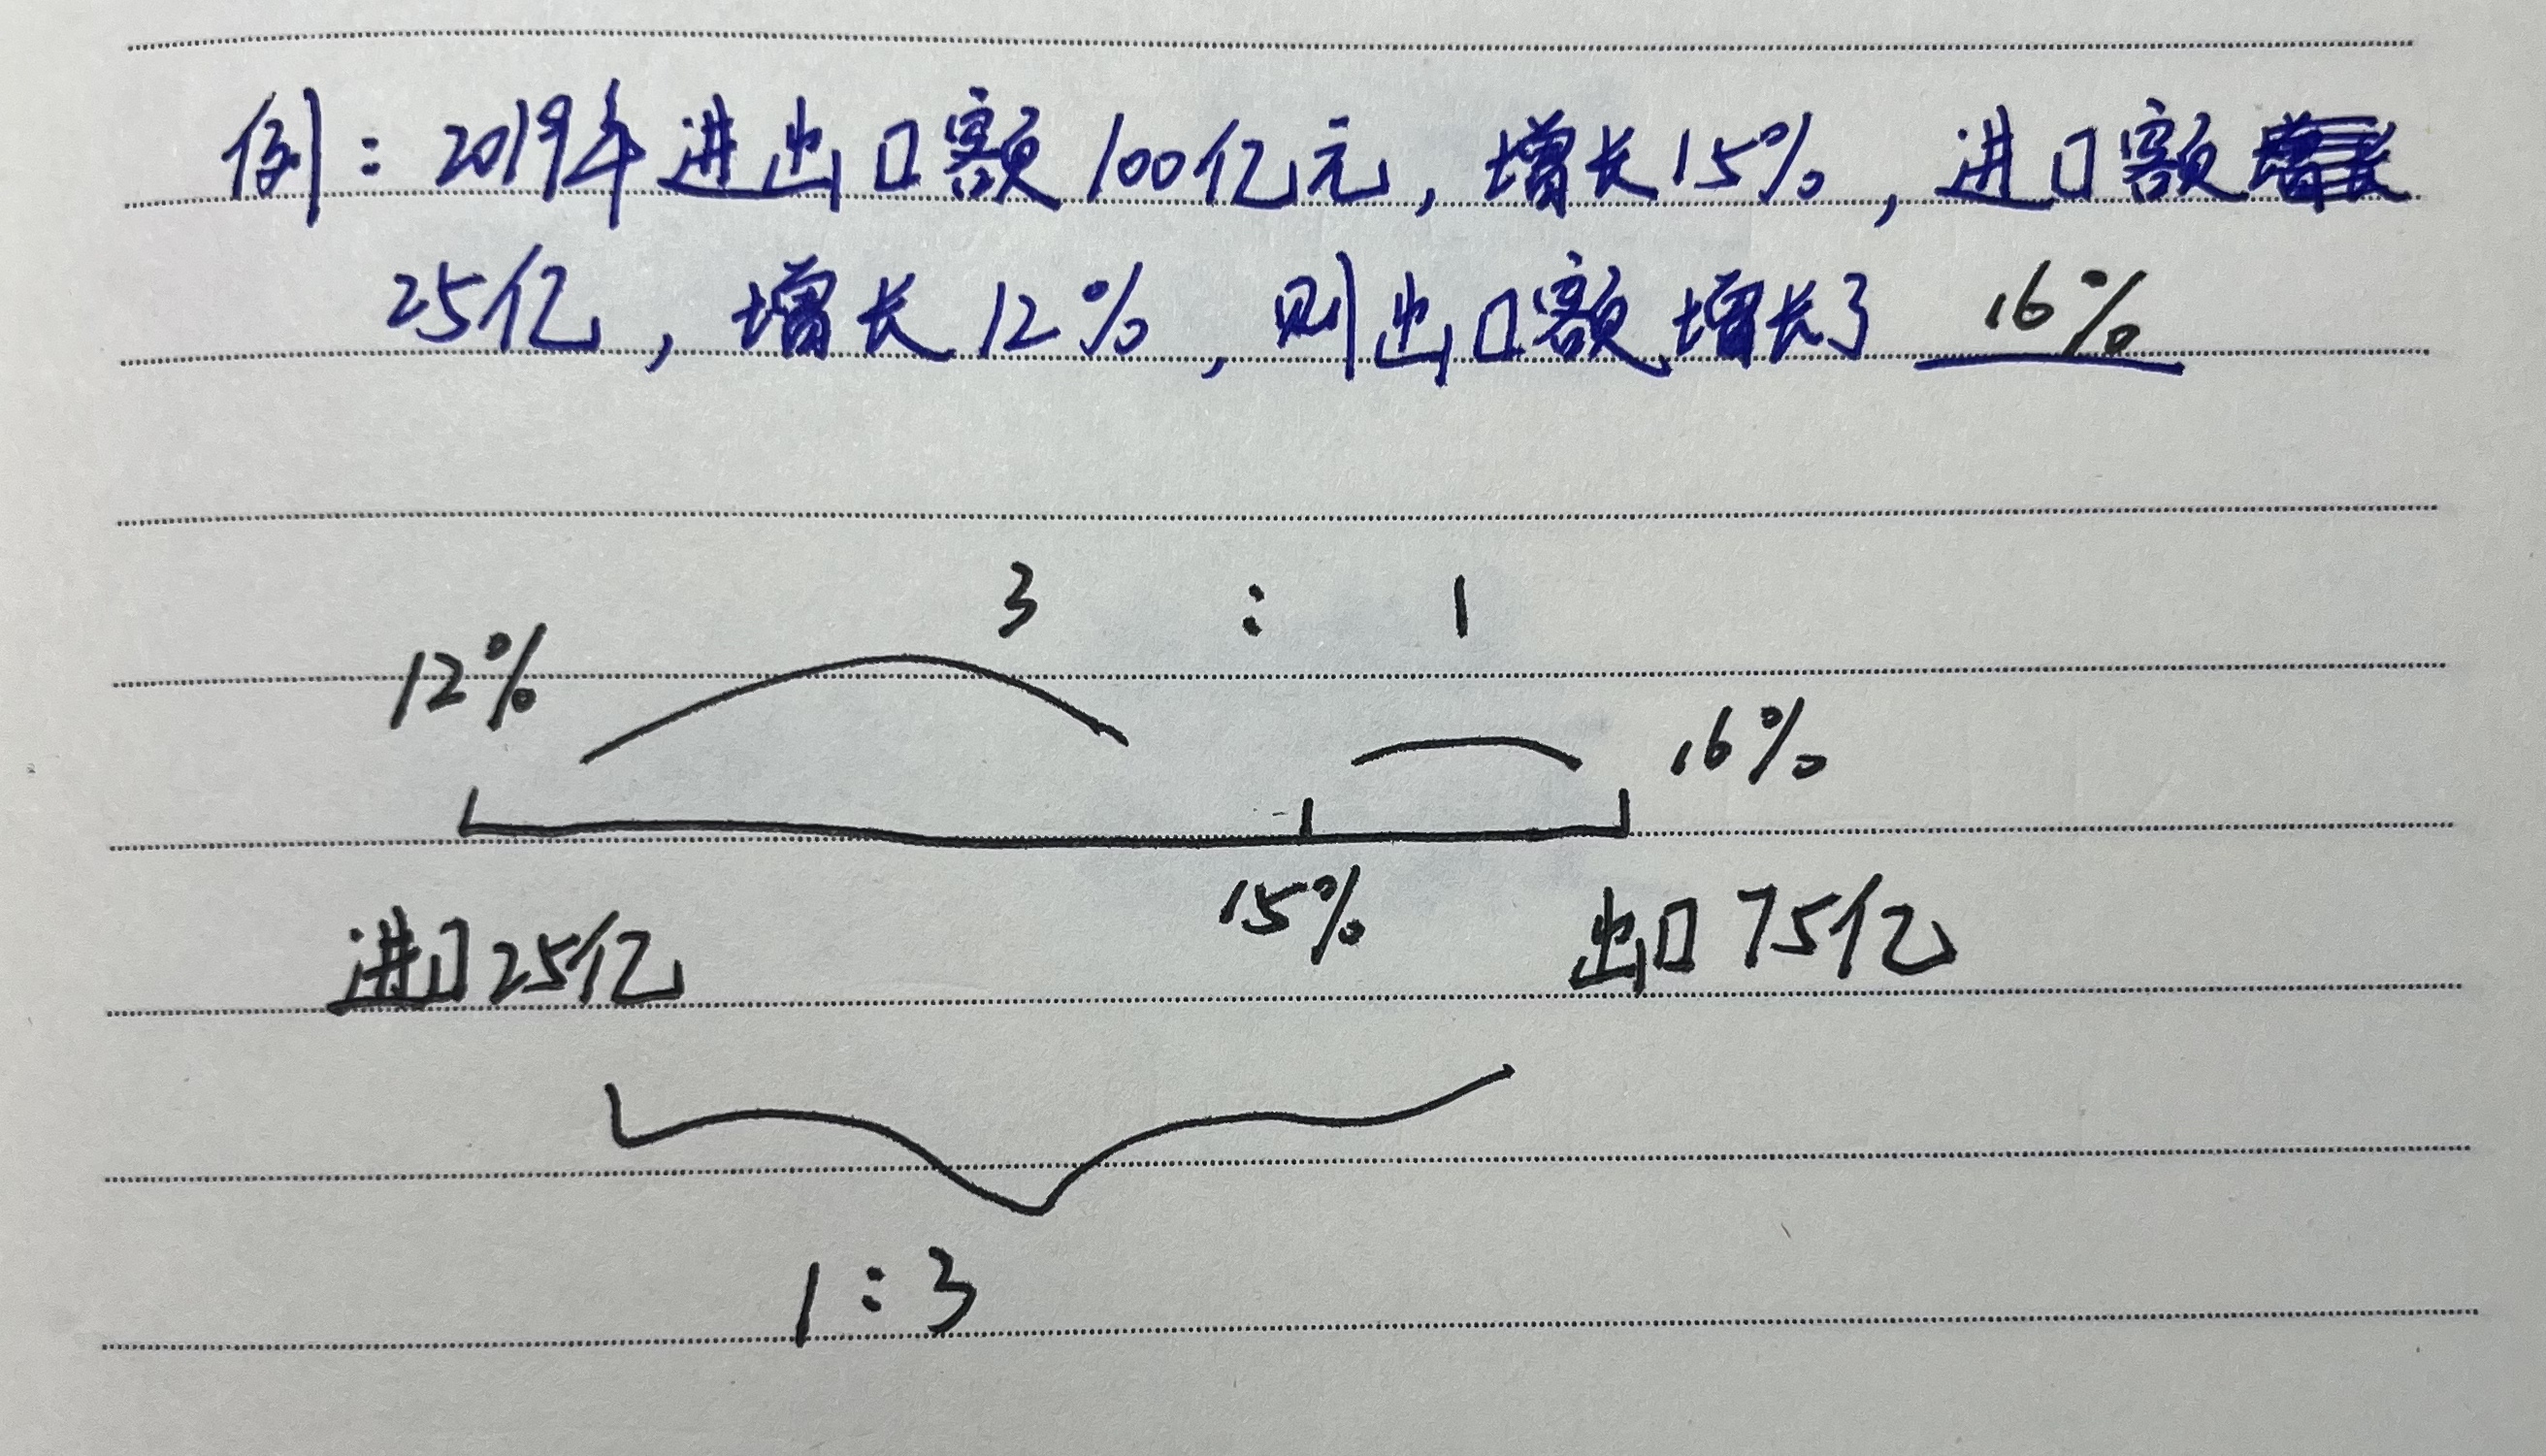 例：2019年进出口额100亿元，增长15%，进口额
25亿，增长12%，则出口额增长了 16%
3 : 1
12%
16%
15%
进口25亿
出口75亿
1:3